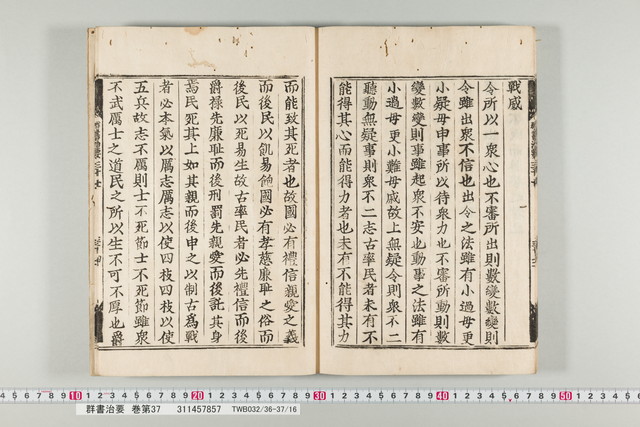 戰威
令所以一衆心也不審所出則數變數變則
令雖出衆不信也出令之法雖有小過毋更
小疑毋申事所以待衆力也不審所動則數
變數變則事雖起衆不安也動事之法雖有
小過毋更小難毋戚故上無疑令則衆不二
聽動無疑事則衆不二志古率民者未有不
能得其心而能得力者也未有不能得其力
而能致其死者也故國必有禮信親愛之義
而後民以飢易飽國必有孝慈廉耻之俗而
後民以死易生故古率民者必先禮信而後
爵祿先廉耻而後刑罰先親愛而後託其身
焉民死其上如其親而後申之以制古爲戰
者必本氣以厲志厲志以使四枝四枝以使
五兵故志不厲則士不死節士不死節雖衆
不武厲士之道民之所以生不可不厚也爵
10 20 30 40 50
群書治要 巻第37 311457857 TWB032/36-37/16